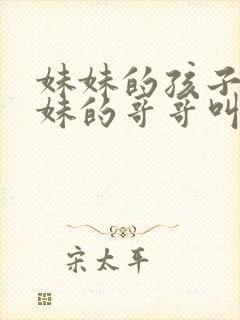 妹妹的孩子
妹的哥哥叫
宋太平